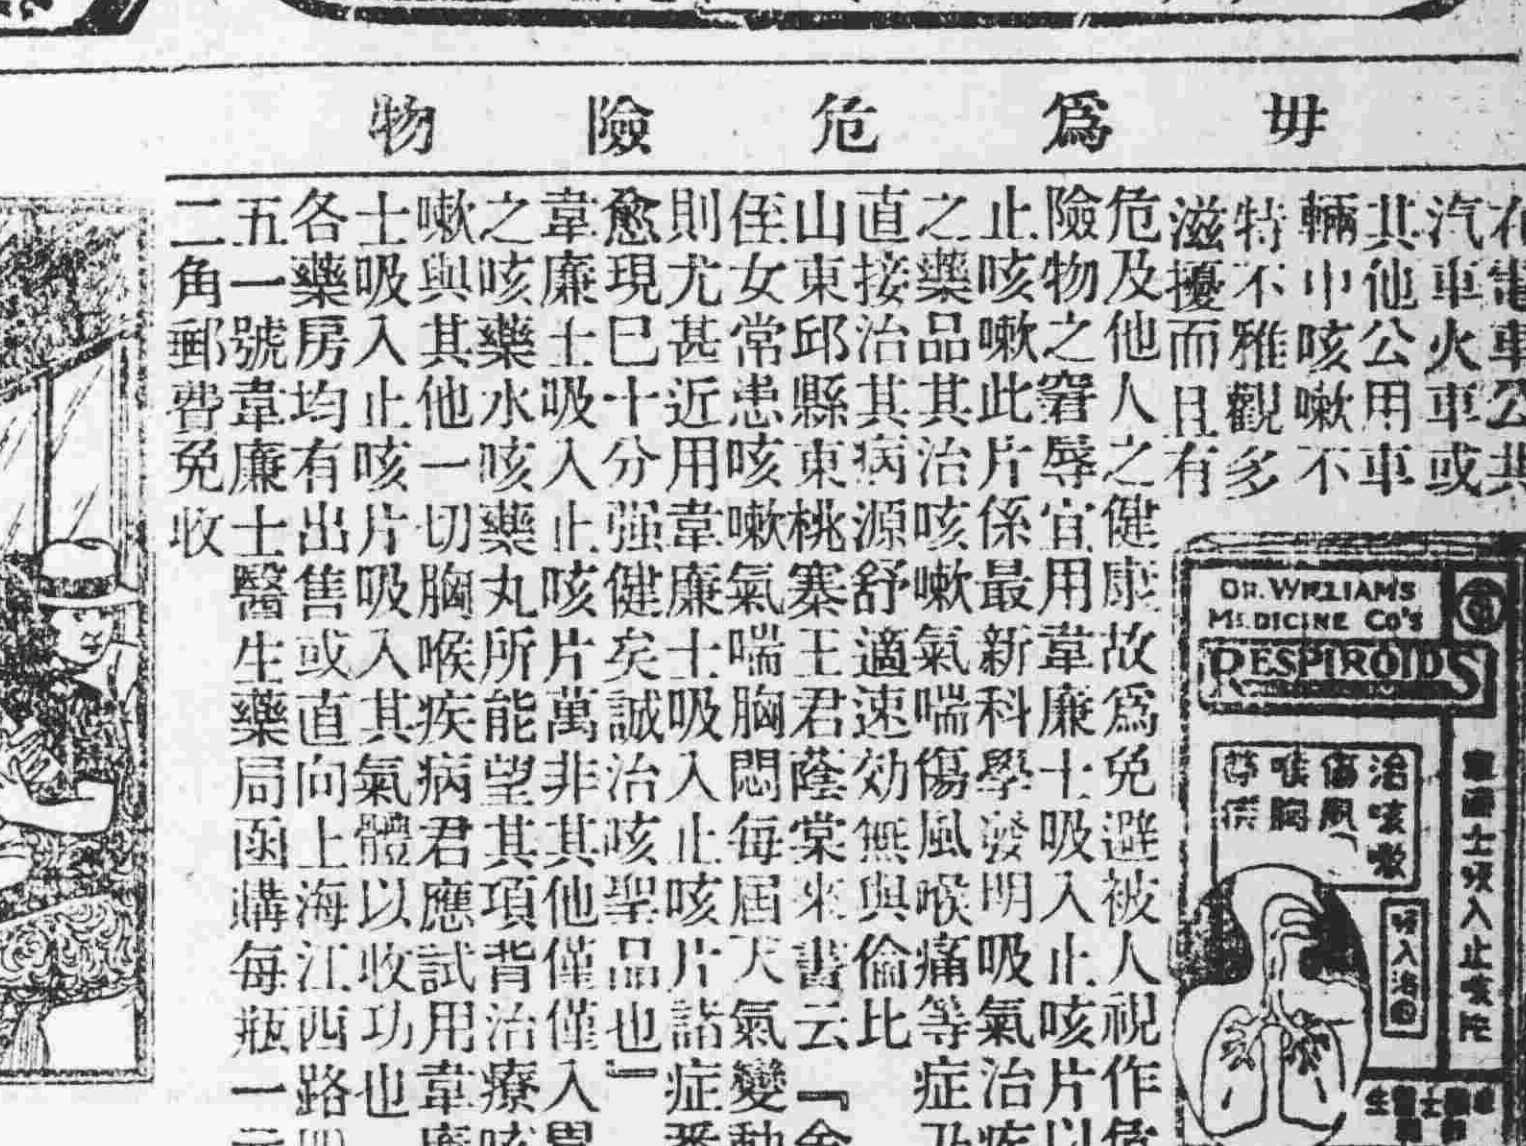 毋爲危險物
汽車火車或
其他公用車
輛中咳嗽不
特不雅觀多
滋擾而且有
危及他人之健康故爲免避被人視作危
險物之窘辱宜用韋廉士吸入止咳片以
止咳嗽此片係最新科學發明吸氣治疾
之藥品其治咳嗽氣喘傷風喉痛等症乃
直接治其病源舒適速効無與倫比
山東邱縣東桃寨王君蔭棠來書云『舍
侄女常患咳嗽氣喘胸悶每屆天氣變動
則尤甚近用韋廉士吸入止咳片諸症悉
愈現已十分强健矣誠治咳聖品也』
韋廉士吸入止咳片萬非其他僅僅入胃
之咳藥水咳藥丸所能望其項背治療咳
嗽與其他一切胸喉疾病君應試用韋廉
士吸入止咳片吸入其氣體以收功也
各藥房均有出售或直向上海江西路四
五一號韋廉士醫生藥局函購每瓶一元
二角郵費免收
DR. WILLIAMS
MEDICINE CO'S
RESPIROIDS
治咳嗽
傷風
喉胸
等疾
韋廉士吸入止咳片